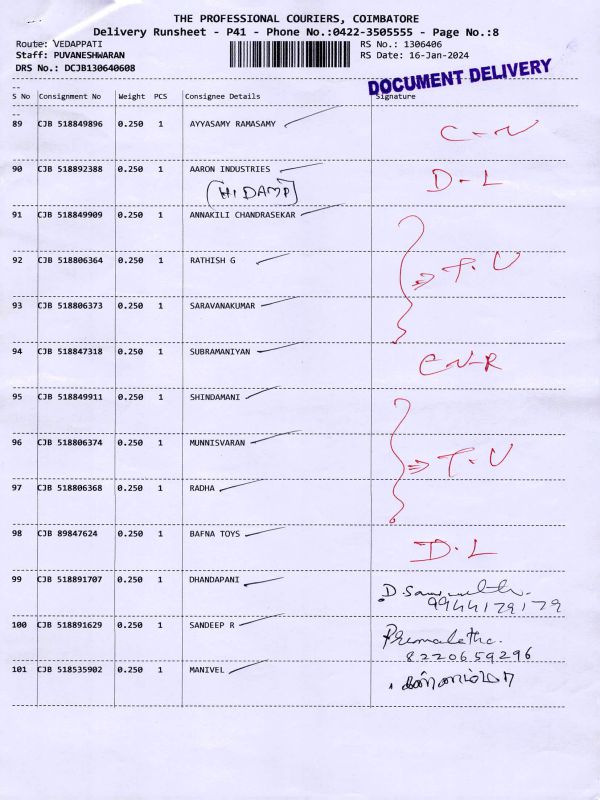 THE PROFESSIONAL COURIERS, COIMBATORE
Delivery Runsheet - P41 - Phone No.:0422-3505555 - Page No.:8
Route: VEDAPPATI
RS No.: 1306406
Staff: PUVANESHWARAN
RS Date: 16-Jan-2024
DRS No.: DCJB130640608
DOCUMENT DELIVERY
--
S No Consignment No Weight PCS Consignee Details Signature
--
89 CJB 518849896 0.250 1 AYYASAMY RAMASAMY C-N
90 CJB 518892388 0.250 1 AARON INDUSTRIES D-L
(HI DAMP)
91 CJB 518849909 0.250 1 ANNAKILI CHANDRASEKAR
92 CJB 518806364 0.250 1 RATHISH G ⇒ T.U
93 CJB 518806373 0.250 1 SARAVANAKUMAR
94 CJB 518847318 0.250 1 SUBRAMANIYAN CN-R
95 CJB 518849911 0.250 1 SHINDAMANI
96 CJB 518806374 0.250 1 MUNNISVARAN ⇒ T.U
97 CJB 518806368 0.250 1 RADHA
98 CJB 89847624 0.250 1 BAFNA TOYS D.L
99 CJB 518891707 0.250 1 DHANDAPANI
9944179179
100 CJB 518891629 0.250 1 SANDEEP R Premaletha.
8220659296
101 CJB 518535902 0.250 1 MANIVEL